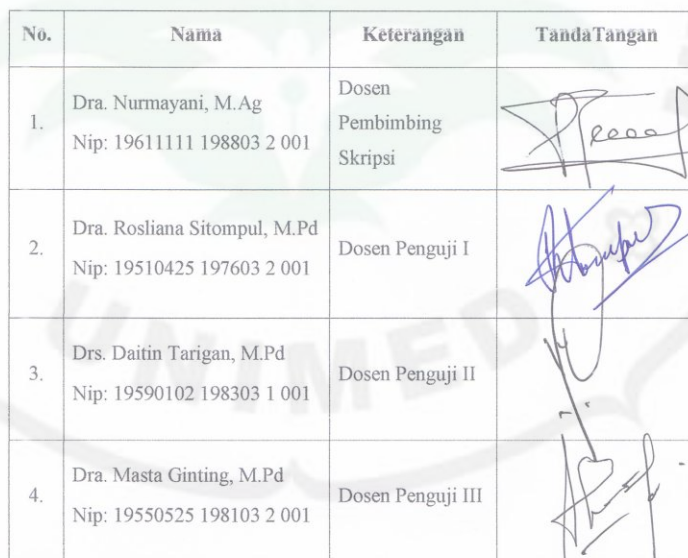 No. Nama Keterangan TandaTangan
1. Dra. Nurmayani, M.Ag
Nip: 19611111 198803 2 001
Dosen
Pembimbing
Skripsi
2. Dra. Rosliana Sitompul, M.Pd
Nip: 19510425 197603 2 001
Dosen Penguji I
3. Drs. Daitin Tarigan, M.Pd
Nip: 19590102 198303 1 001
Dosen Penguji II
4. Dra. Masta Ginting, M.Pd
Nip: 19550525 198103 2 001
Dosen Penguji III
UNIMED